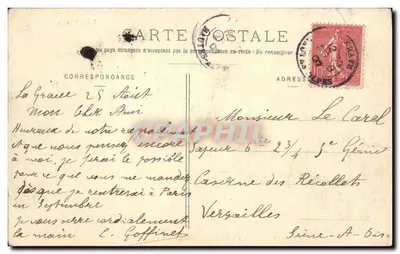 CARTE POSTALE
pays étrangers n'acceptent pas la correspondance au recto
CORRESPONDANCE
ADRESSE
La Grave 25 Août
Mon cher Ami
Heureux de notre
et que vous pensez encore
à moi, je ferai le possible
pour ce que vous me mandez
dès que je rentrerai à Paris
en Septembre
Je vous serre cordialement
la main L. Goffinet
Monsieur Le Carel
Sapeur 6 23/4 5e Génie
Caserne des Récollets
Versailles
Seine-&-Oise